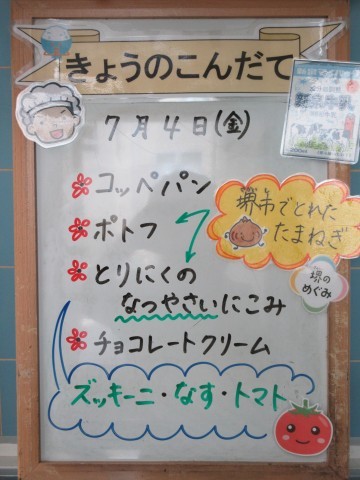 きょうのこんだて
7月4日(金)
コッペパン
ポトフ
堺市でとれた
たまねぎ
とりにくの
なつやさいにこみ
堺の
めぐみ
チョコレートクリーム
ズッキーニ・なす・トマト